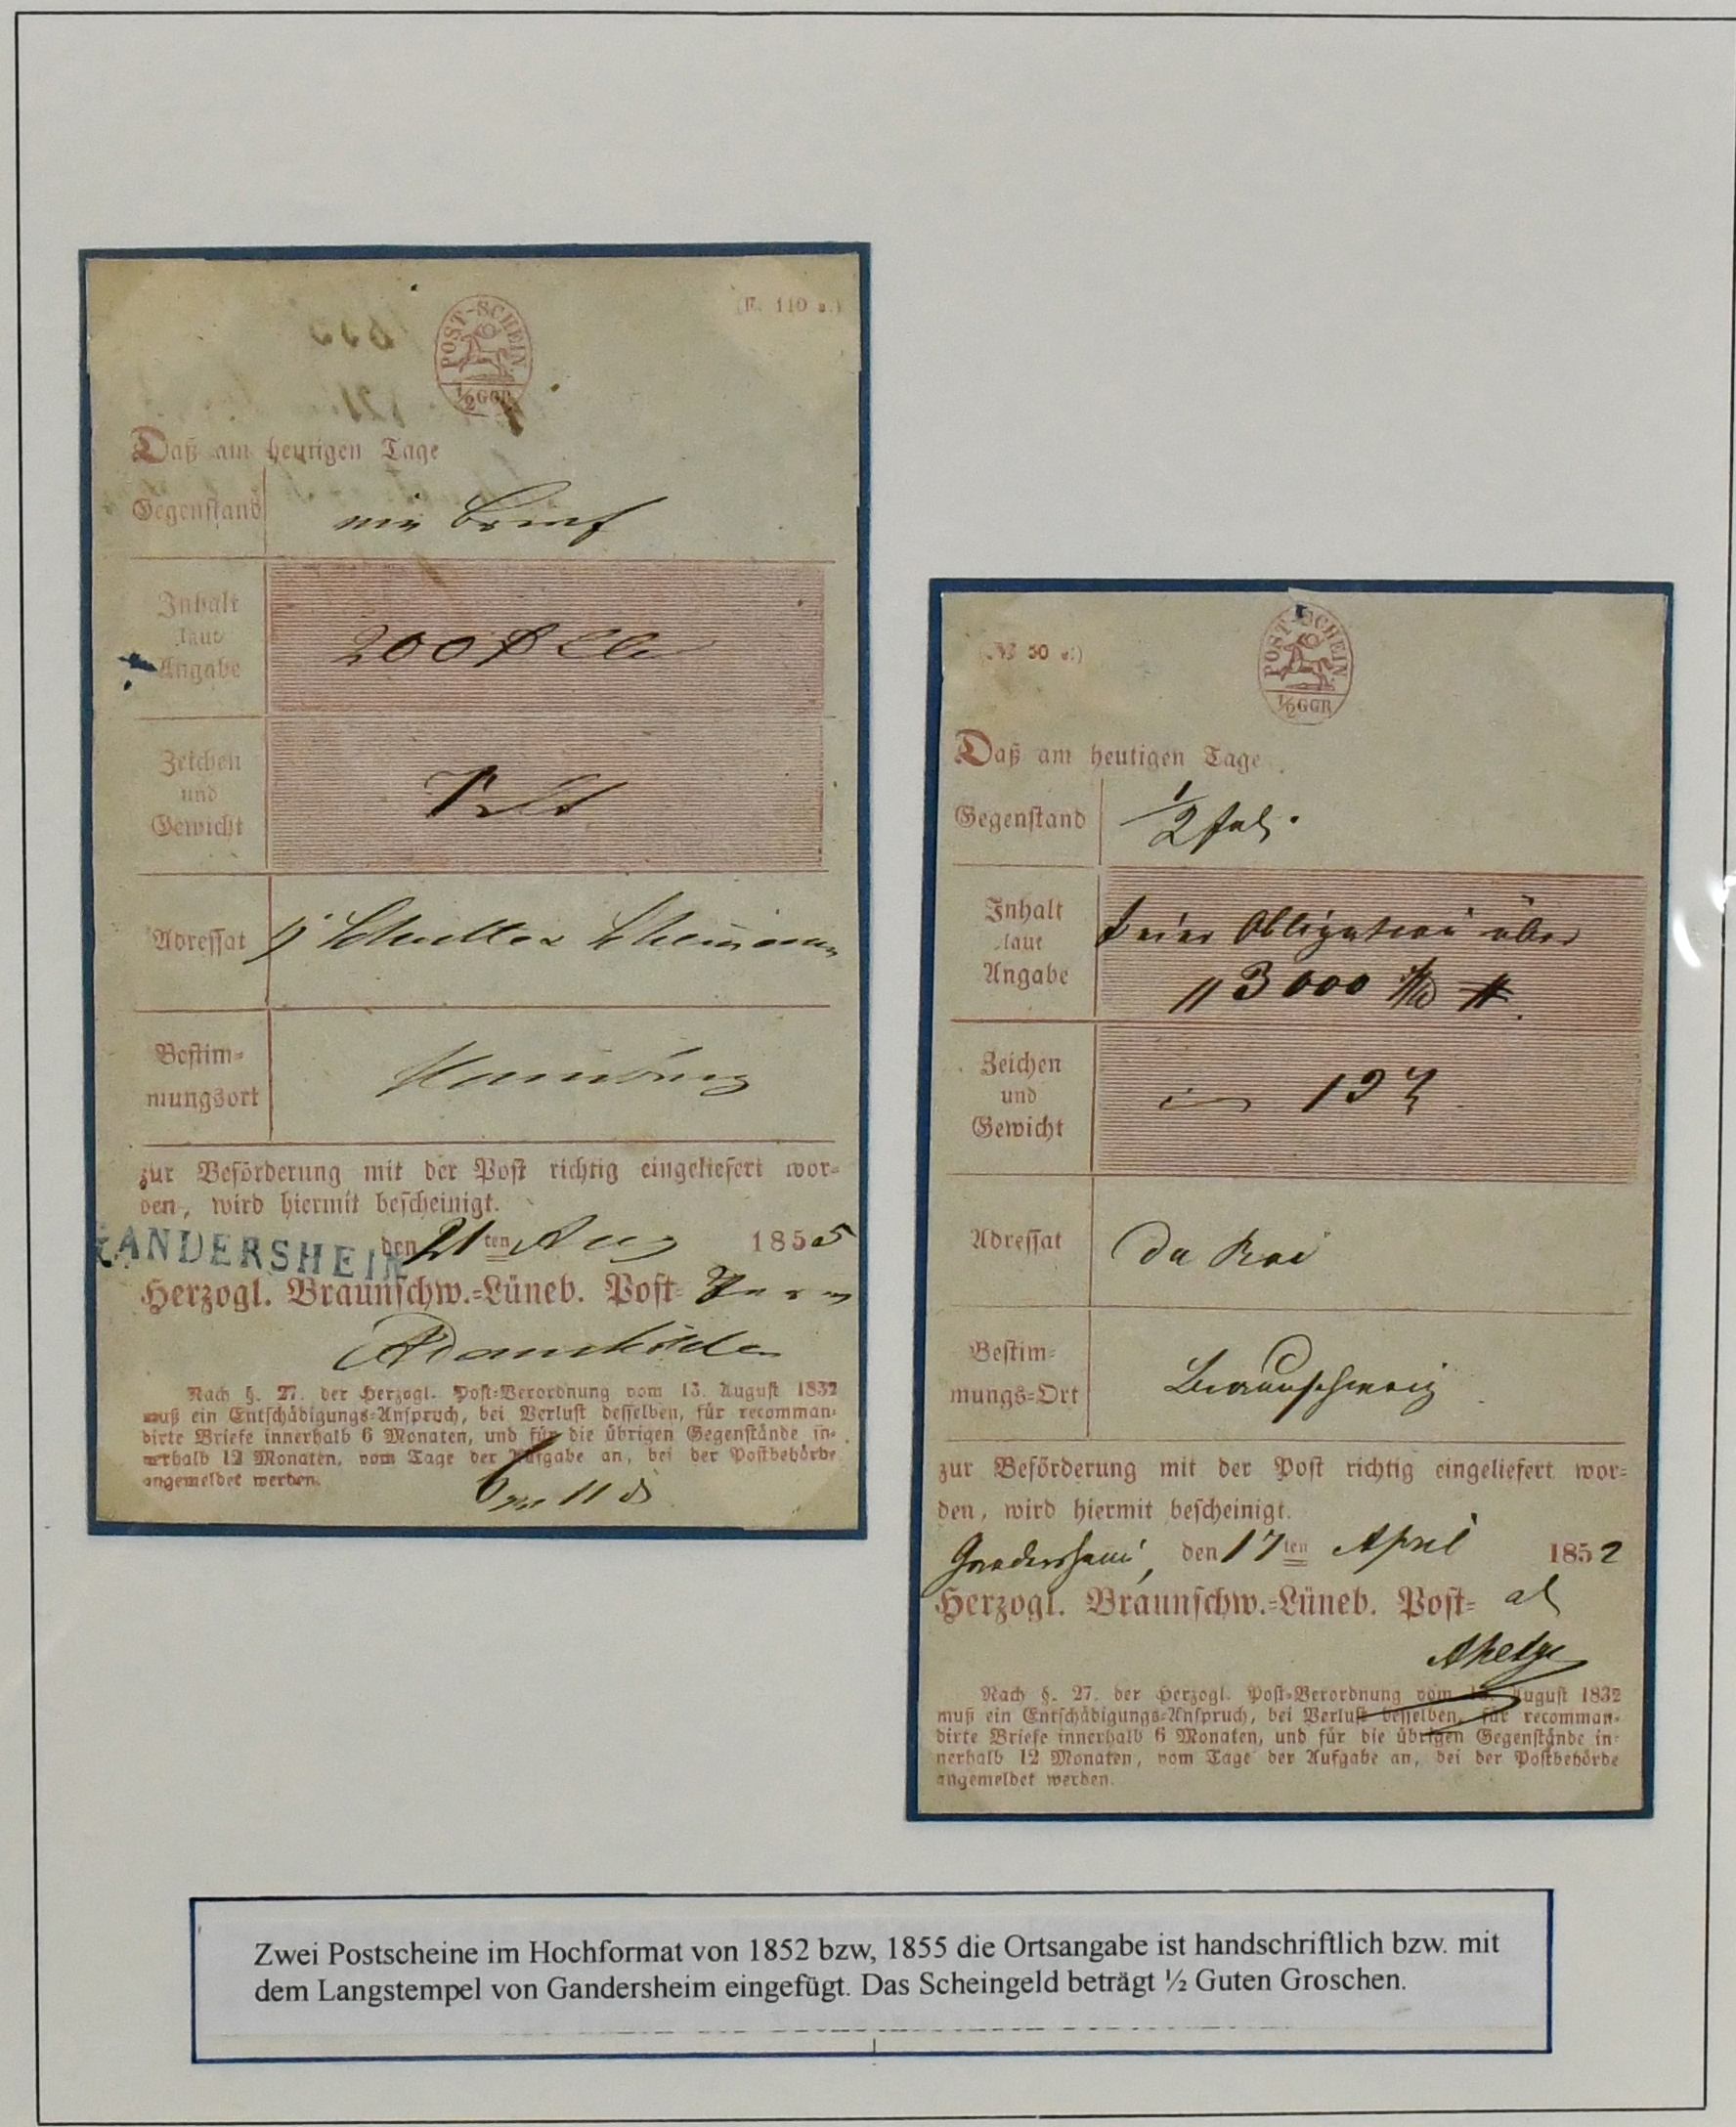 POST-SCHEIN.
½ GGR
Daß am heutigen Tage
Gegenstand
ein Brief
Inhalt
laut
Angabe
200
Zeichen
und
Gewicht
Adressat
Bestim=
mungsort
Hamburg
zur Beförderung mit der Post richtig eingeliefert wor=
den, wird hiermit bescheinigt.
GANDERSHEIM
den 21ten Aug 1855
Herzogl. Braunschw.=Lüneb. Post=
Nach §. 27. der Herzogl. Post=Verordnung vom 13. August 1832
muß ein Entschädigungs=Anspruch, bei Verlust desselben, für recomman=
dirte Briefe innerhalb 6 Monaten, und für die übrigen Gegenstände in=
nerhalb 12 Monaten, vom Tage der Aufgabe an, bei der Postbehörde
angemeldet werden.
POST-SCHEIN.
½ GGR
Daß am heutigen Tage
Gegenstand
Inhalt
laut
Angabe
Obligation über
3000
Zeichen
und
Gewicht
Adressat
Du Roi
Bestim=
mungs=Ort
Braunschweig
zur Beförderung mit der Post richtig eingeliefert wor=
den, wird hiermit bescheinigt.
Gandersheim, den 17ten April 1852
Herzogl. Braunschw.=Lüneb. Post=
Nach §. 27. der Herzogl. Post=Verordnung vom 13. August 1832
muß ein Entschädigungs=Anspruch, bei Verlust desselben, für recomman=
dirte Briefe innerhalb 6 Monaten, und für die übrigen Gegenstände in=
nerhalb 12 Monaten, vom Tage der Aufgabe an, bei der Postbehörde
angemeldet werden.
Zwei Postscheine im Hochformat von 1852 bzw, 1855 die Ortsangabe ist handschriftlich bzw. mit
dem Langstempel von Gandersheim eingefügt. Das Scheingeld beträgt ½ Guten Groschen.